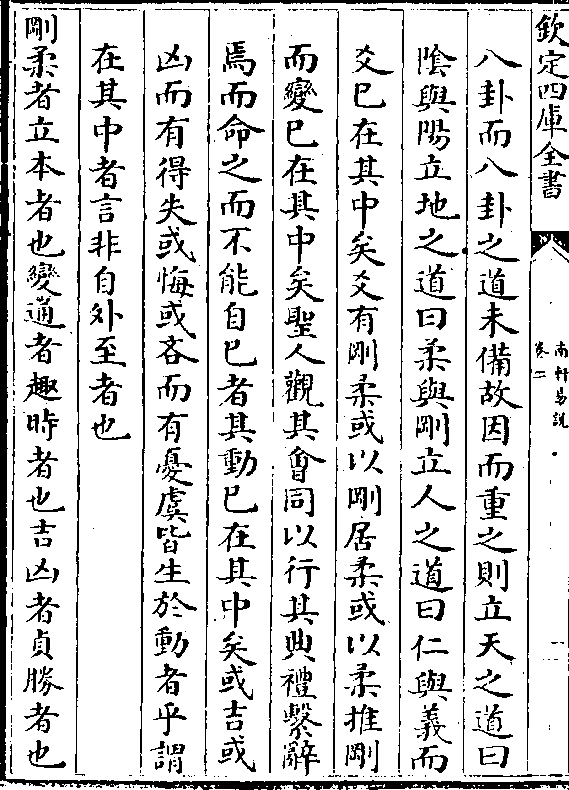 欽定四庫全書
南軒易說
卷二
八卦而八卦之道未備故因而重之則立天之道曰
陰與陽立地之道曰柔與剛立人之道曰仁與義而
爻已在其中矣爻有剛柔或以剛居柔或以柔推剛
而變已在其中矣聖人觀其會同以行其典禮繫辭
焉而命之而不能自已者其動已在其中矣或吉或
凶而有得失或悔或吝而有憂虞皆生於動者乎謂
在其中者言非自外至者也
剛柔者立本者也變通者趣時者也吉凶者貞勝者也